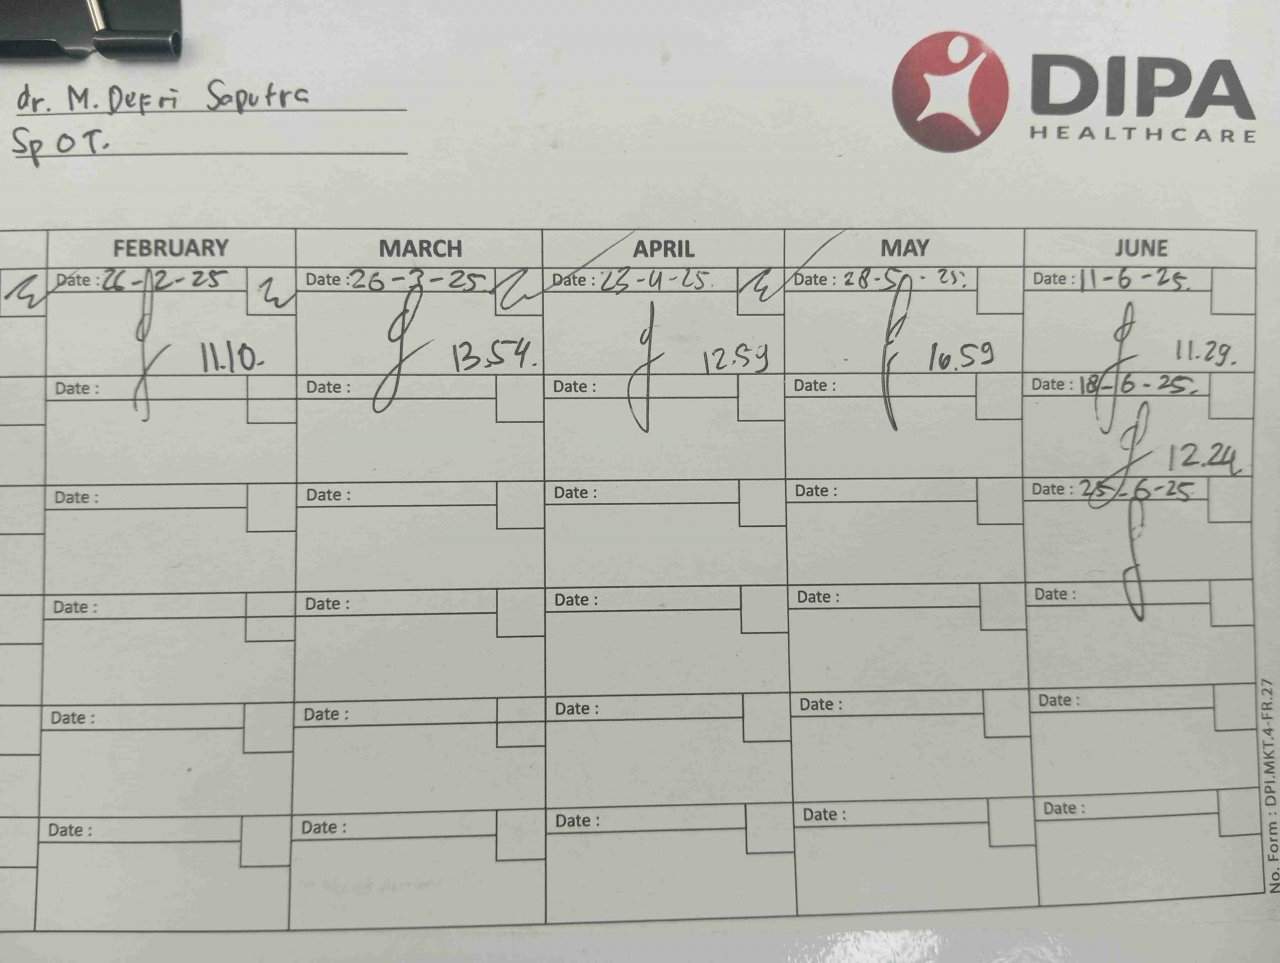 dr. M. Defri Saputra
SpOT.
DIPA
HEALTHCARE
FEBRUARY MARCH APRIL MAY JUNE
Date : 26-2-25 Date : 26-3-25. Date : 23-4-25. Date : 28-5-25. Date : 11-6-25.
11.10. 13.54. 12.59 16.59 11.29.
Date : Date : Date : Date : Date : 18-6-25.
12.24
Date : Date : Date : Date : Date : 25-6-25
Date : Date : Date : Date : Date :
Date : Date : Date : Date : Date :
Date : Date : Date : Date : Date :
No. Form : DPI.MKT.4-FR.27